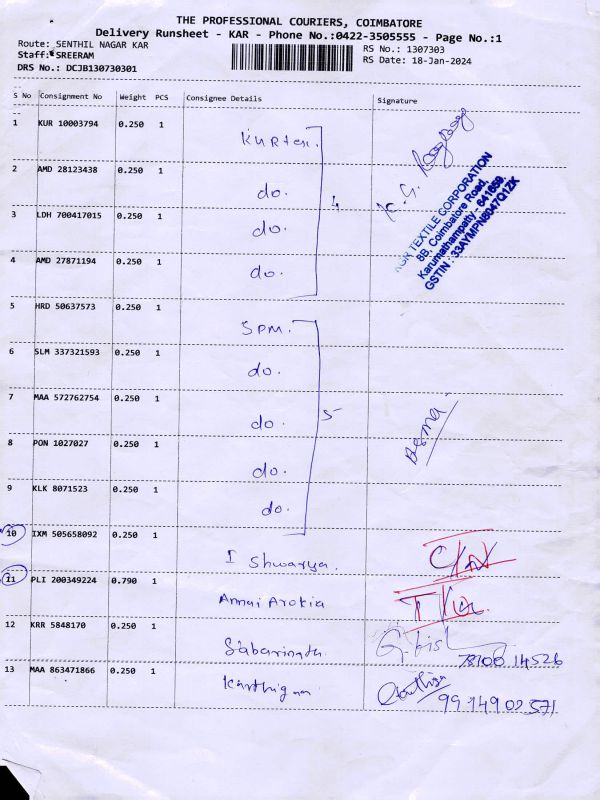 THE PROFESSIONAL COURIERS, COIMBATORE
Delivery Runsheet - KAR - Phone No.:0422-3505555 - Page No.:1
Route: SENTHIL NAGAR KAR
Staff: SREERAM
DRS No.: DCJB130730301
RS No.: 1307303
RS Date: 18-Jan-2024
S No Consignment No Weight PCS Consignee Details Signature
1 KUR 10003794 0.250 1
2 AMD 28123438 0.250 1 do.
3 LDH 700417015 0.250 1 do.
4 AMD 27871194 0.250 1 do.
4
TEXTILE CORPORATION
8B, Coimbatore Road,
Karumathampatty - 641659.
GSTIN : 33AYMPN8047Q1ZK
5 HRD 50637573 0.250 1 SPM.
6 SLM 337321593 0.250 1 do.
7 MAA 572762754 0.250 1 do.
8 PON 1027027 0.250 1 do.
9 KLK 8071523 0.250 1 do.
5
10 IXM 505658092 0.250 1 Ishwarya.
11 PLI 200349224 0.790 1 Annai Arokia
12 KRR 5848170 0.250 1 Sabarinath
13 MAA 863471866 0.250 1